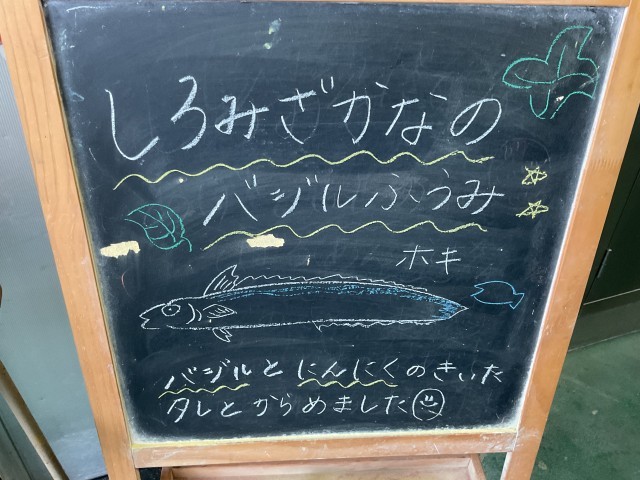 しろみざかなの
バジルふうみ
ホキ
バジルとにんにくのきいた
タレとからめました